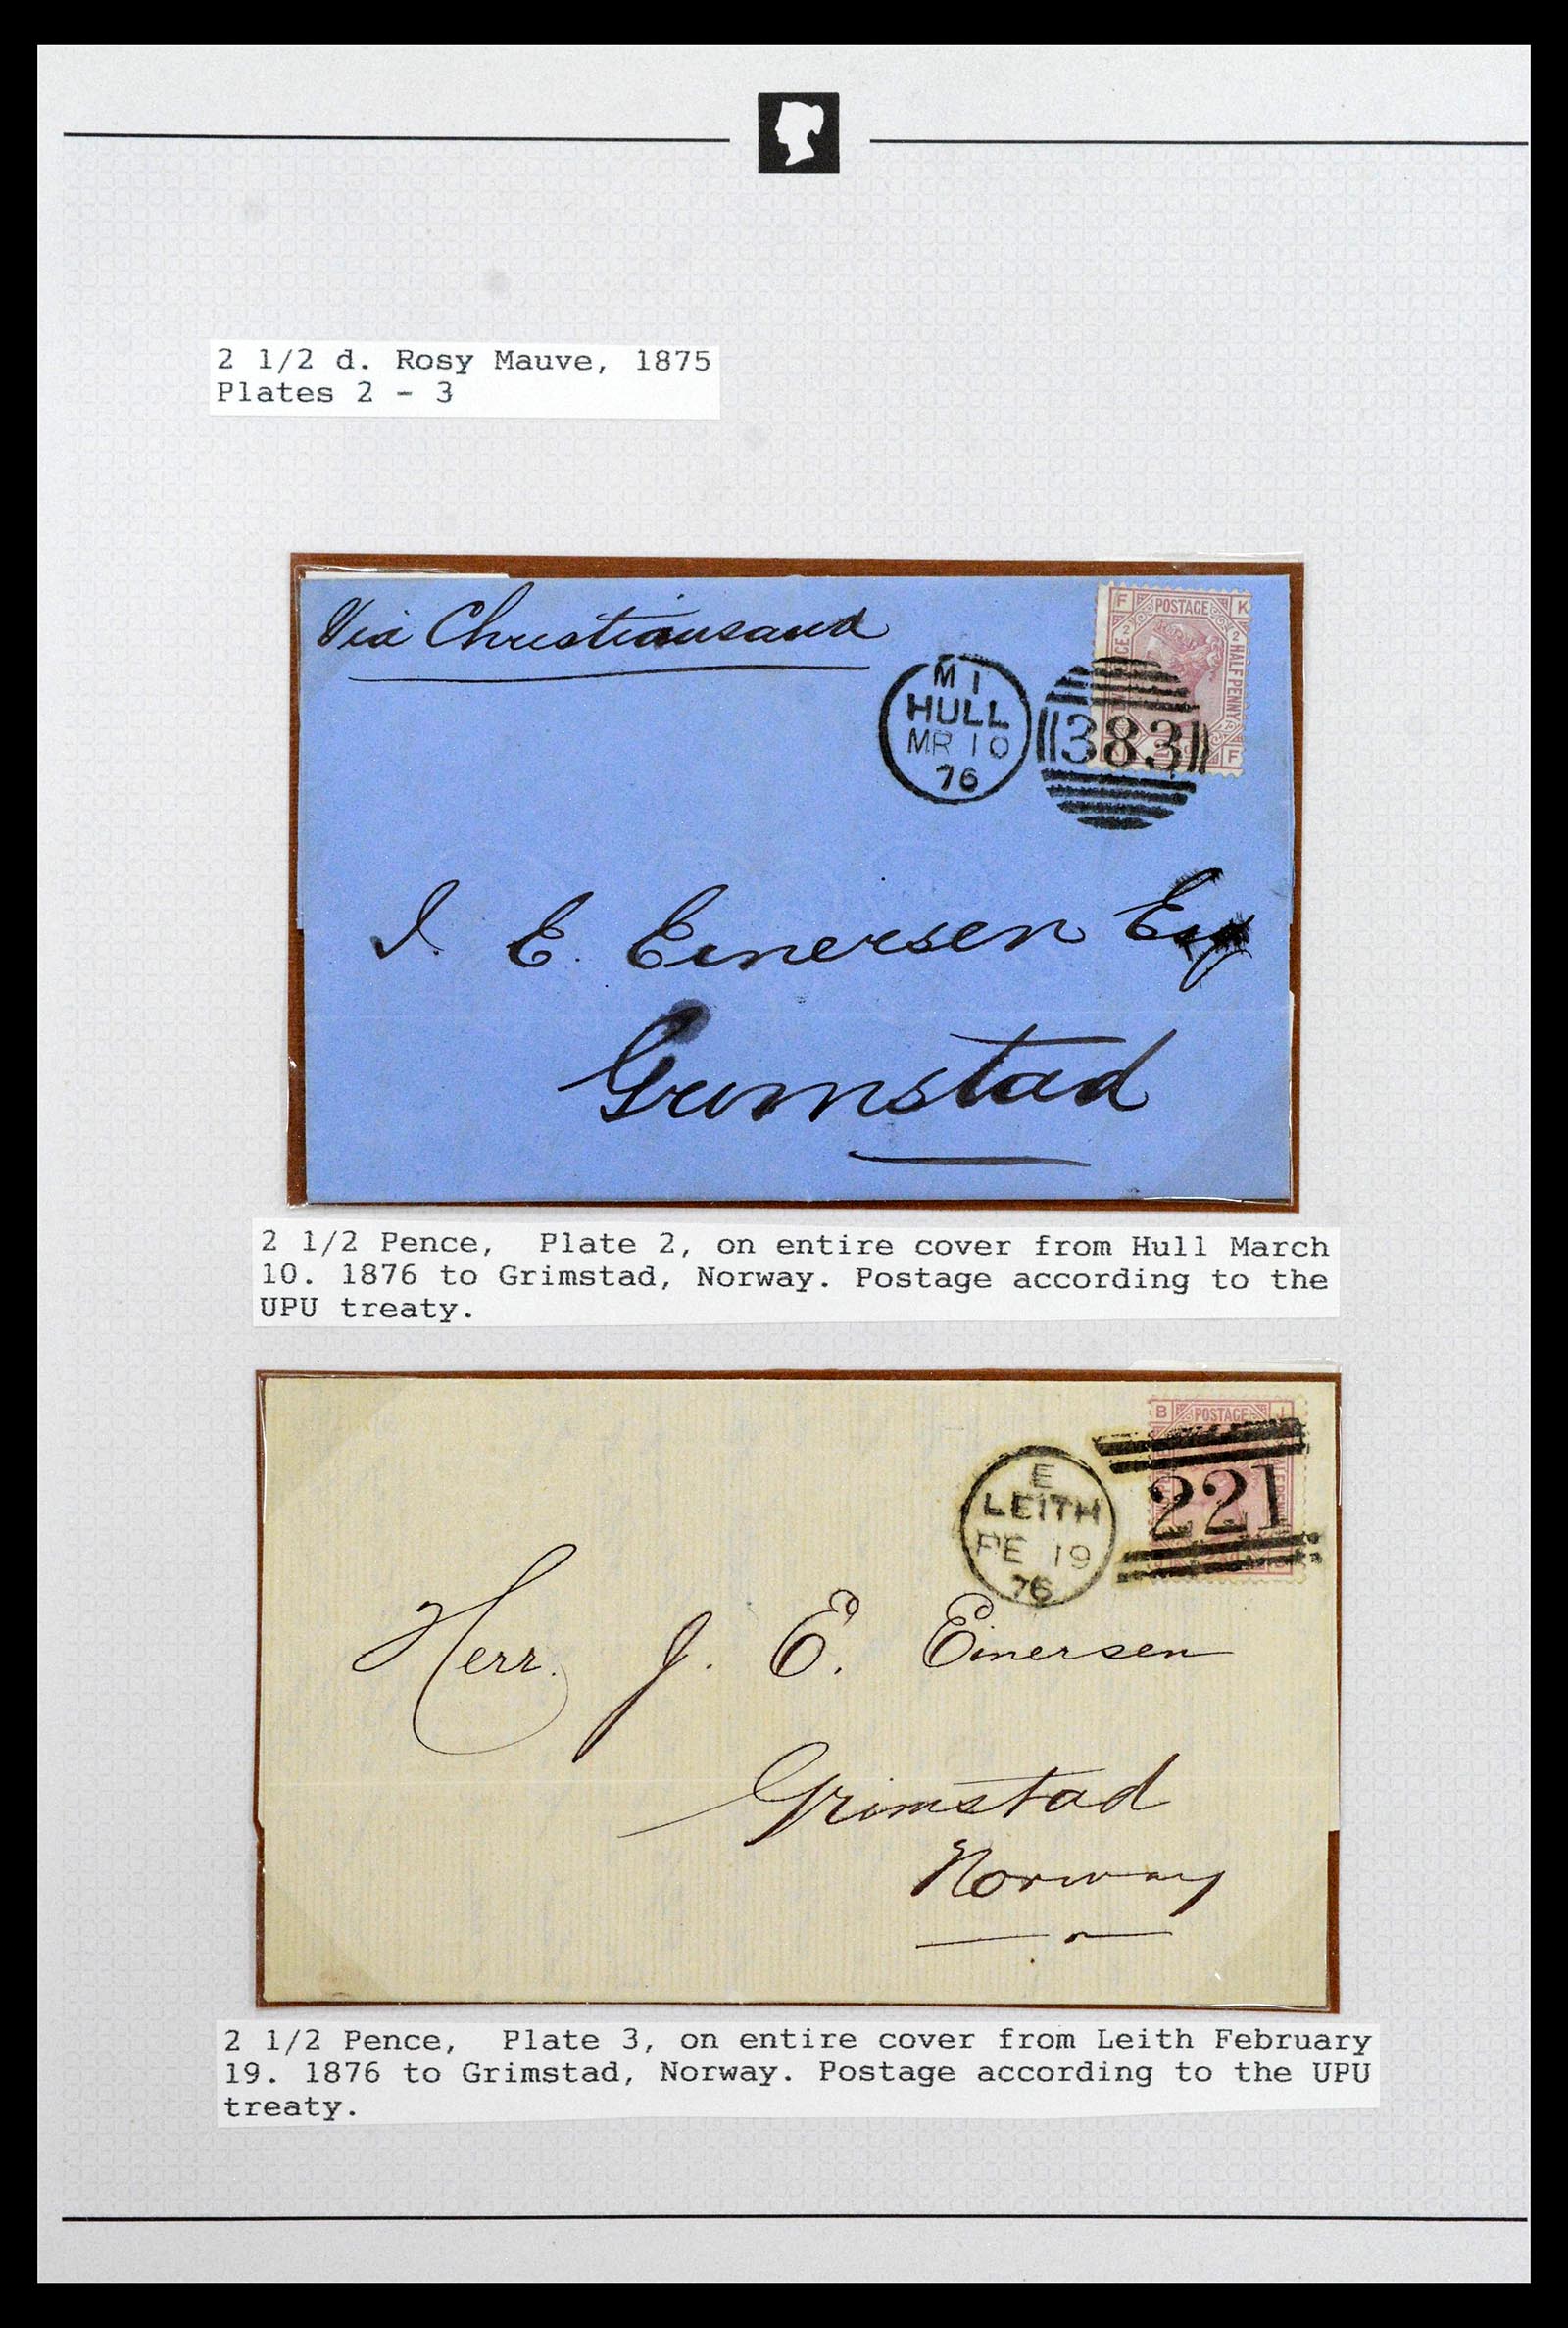 2 1/2 d. Rosy Mauve, 1875
Plates 2 - 3
Via Christiansand
F POSTAGE K
2 2
HALF PENNY
F
M I
HULL
MR 10
76
383
J. E. Einersen Esq
Grimstad
2 1/2 Pence, Plate 2, on entire cover from Hull March
10. 1876 to Grimstad, Norway. Postage according to the
UPU treaty.
B POSTAGE J
E
LEITH
FE 19
76
221
Herr. J. E. Einersen
Grimstad
Norway
2 1/2 Pence, Plate 3, on entire cover from Leith February
19. 1876 to Grimstad, Norway. Postage according to the UPU
treaty.